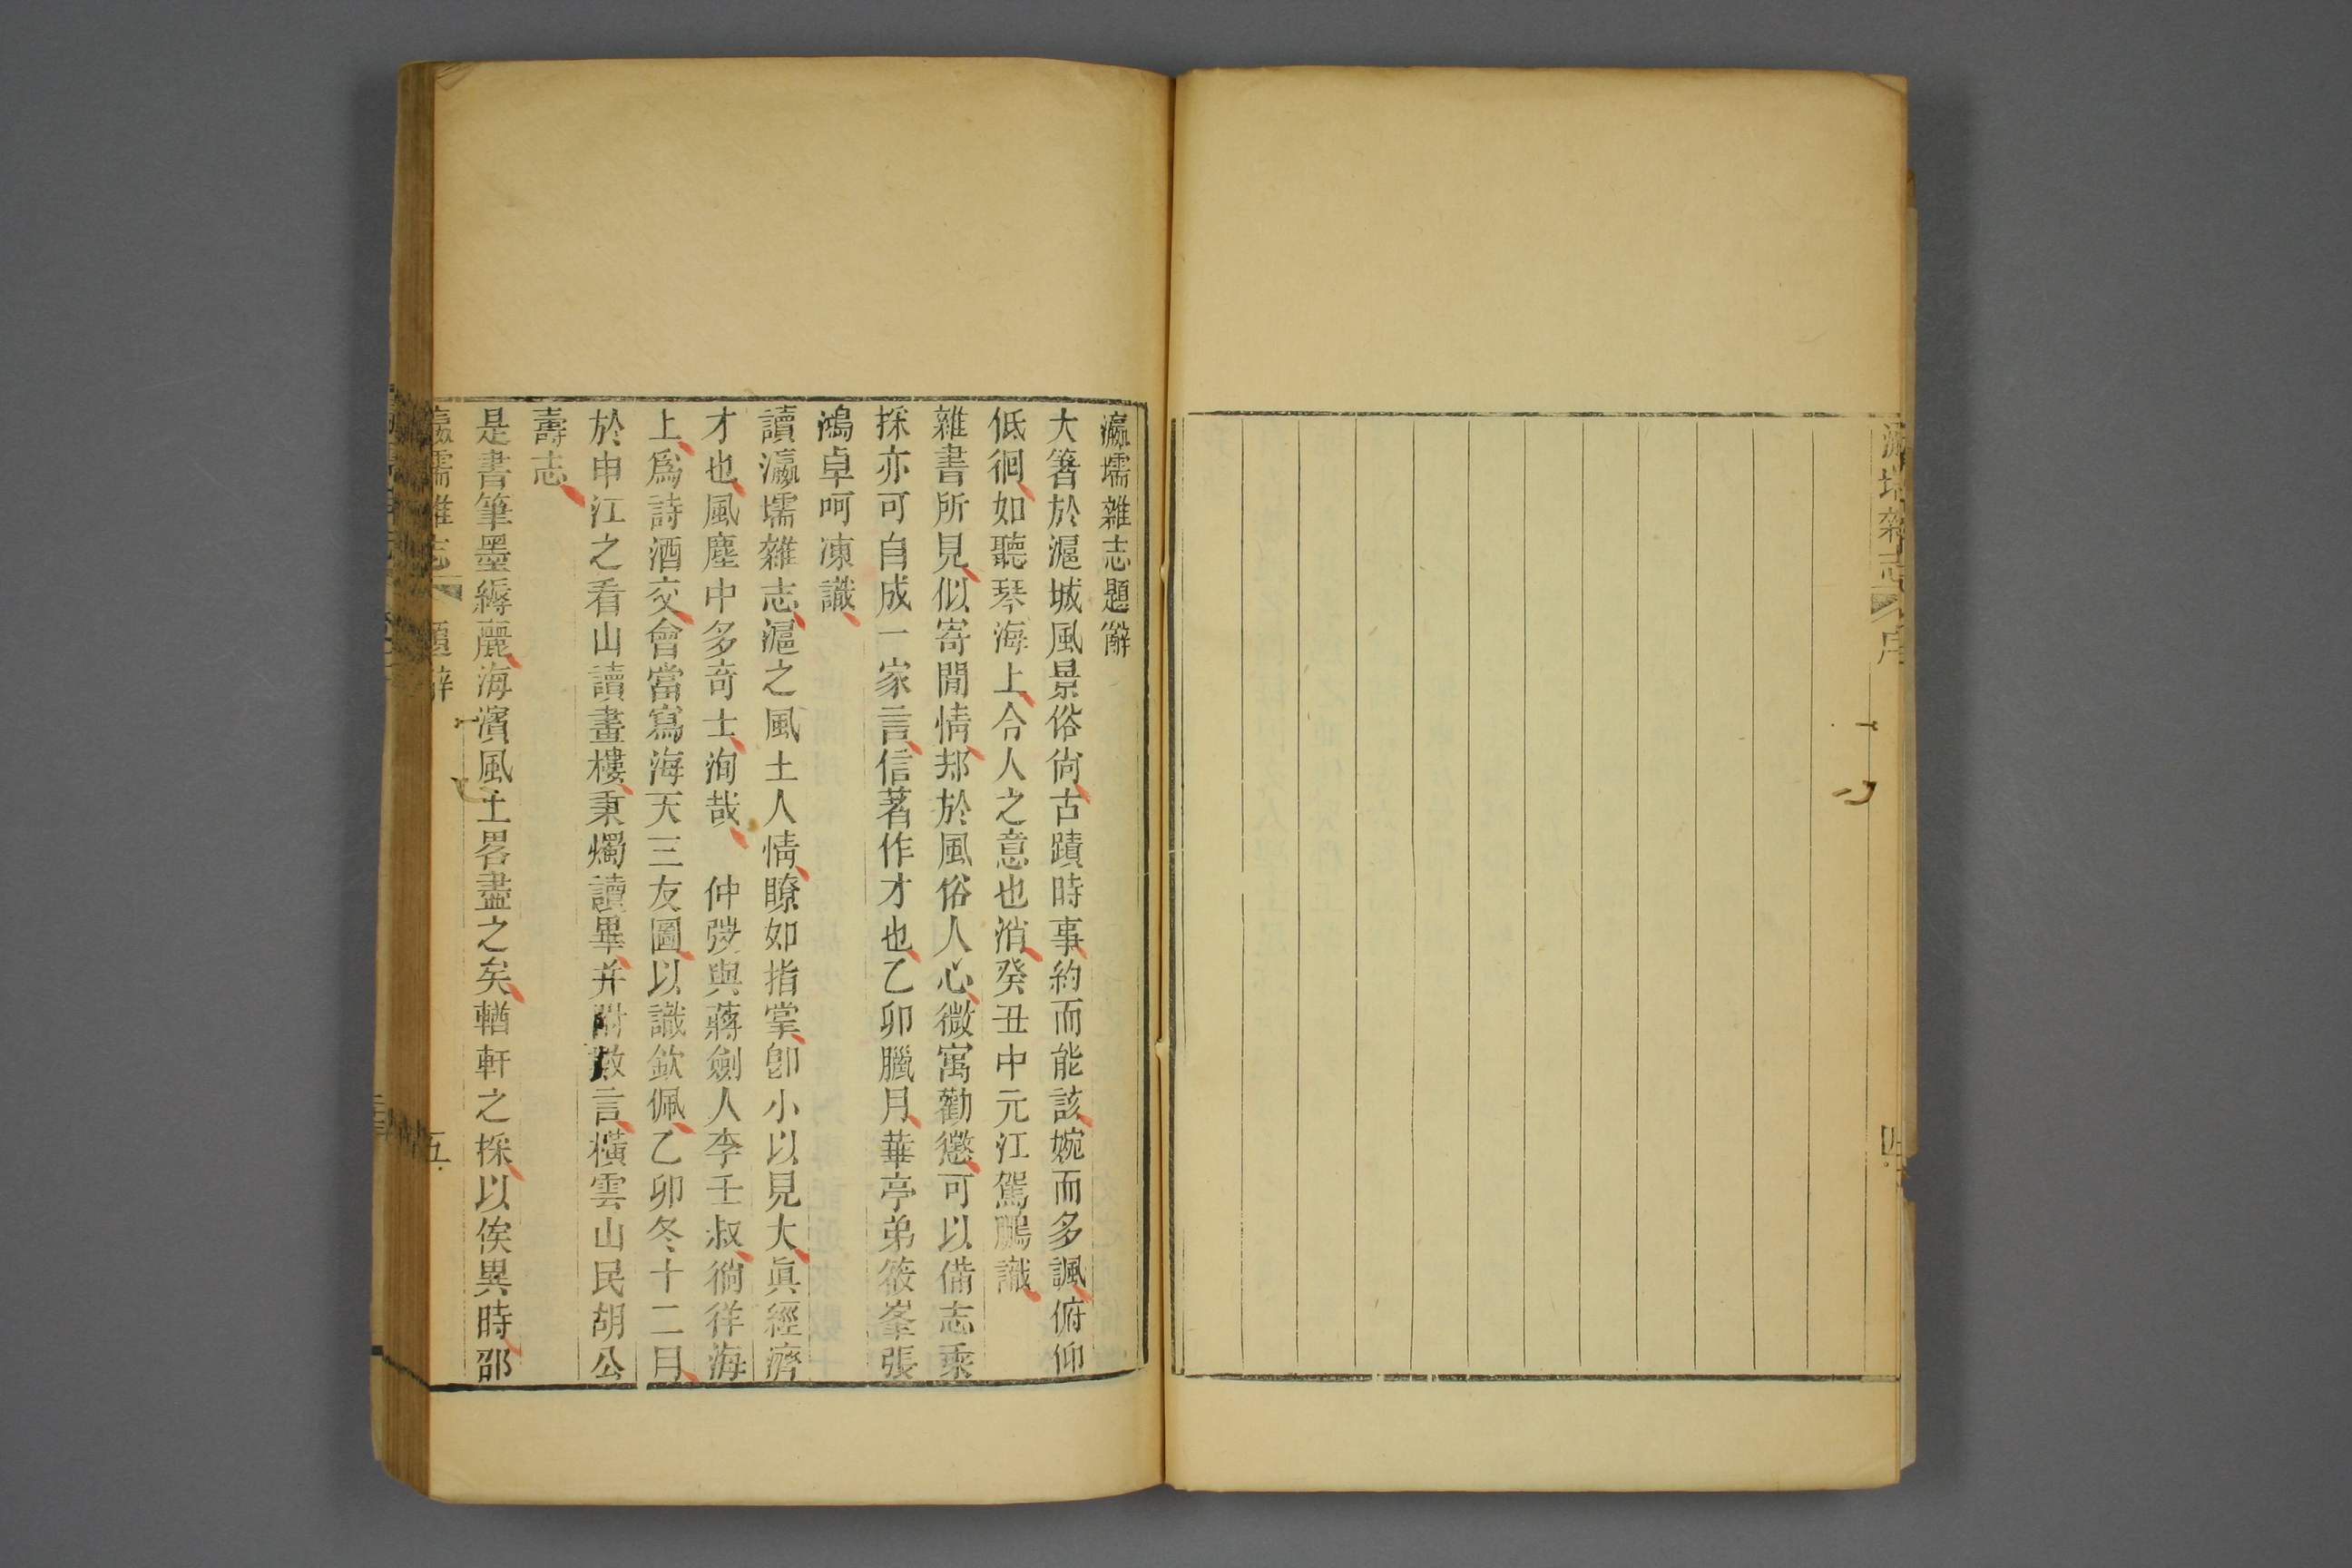 瀛壖雜志 序
四
瀛壖雜志題辭
大箸於滬城風景俗尙古蹟時事約而能該婉而多諷俯仰
低徊如聽琴海上令人之意也消癸丑中元江駕鵬識
雜書所見似寄閒情邦於風俗人心微寓勸懲可以備志乘
採亦可自成一家言信著作才也乙卯臘月華亭弟筱峯張
鴻卓呵凍識
讀瀛壖雜志滬之風土人情瞭如指掌卽小以見大眞經濟
才也風塵中多奇士洵哉 仲弢與蔣劍人李壬叔徜徉海
上爲詩酒交會當寫海天三友圖以識欽佩乙卯冬十二月
於申江之看山讀畫樓秉燭讀畢并附數言橫雲山民胡公
壽志
是書筆墨縟麗海濱風土畧盡之矣輶軒之採以俟異時邵
瀛壖雜志 題辭
五